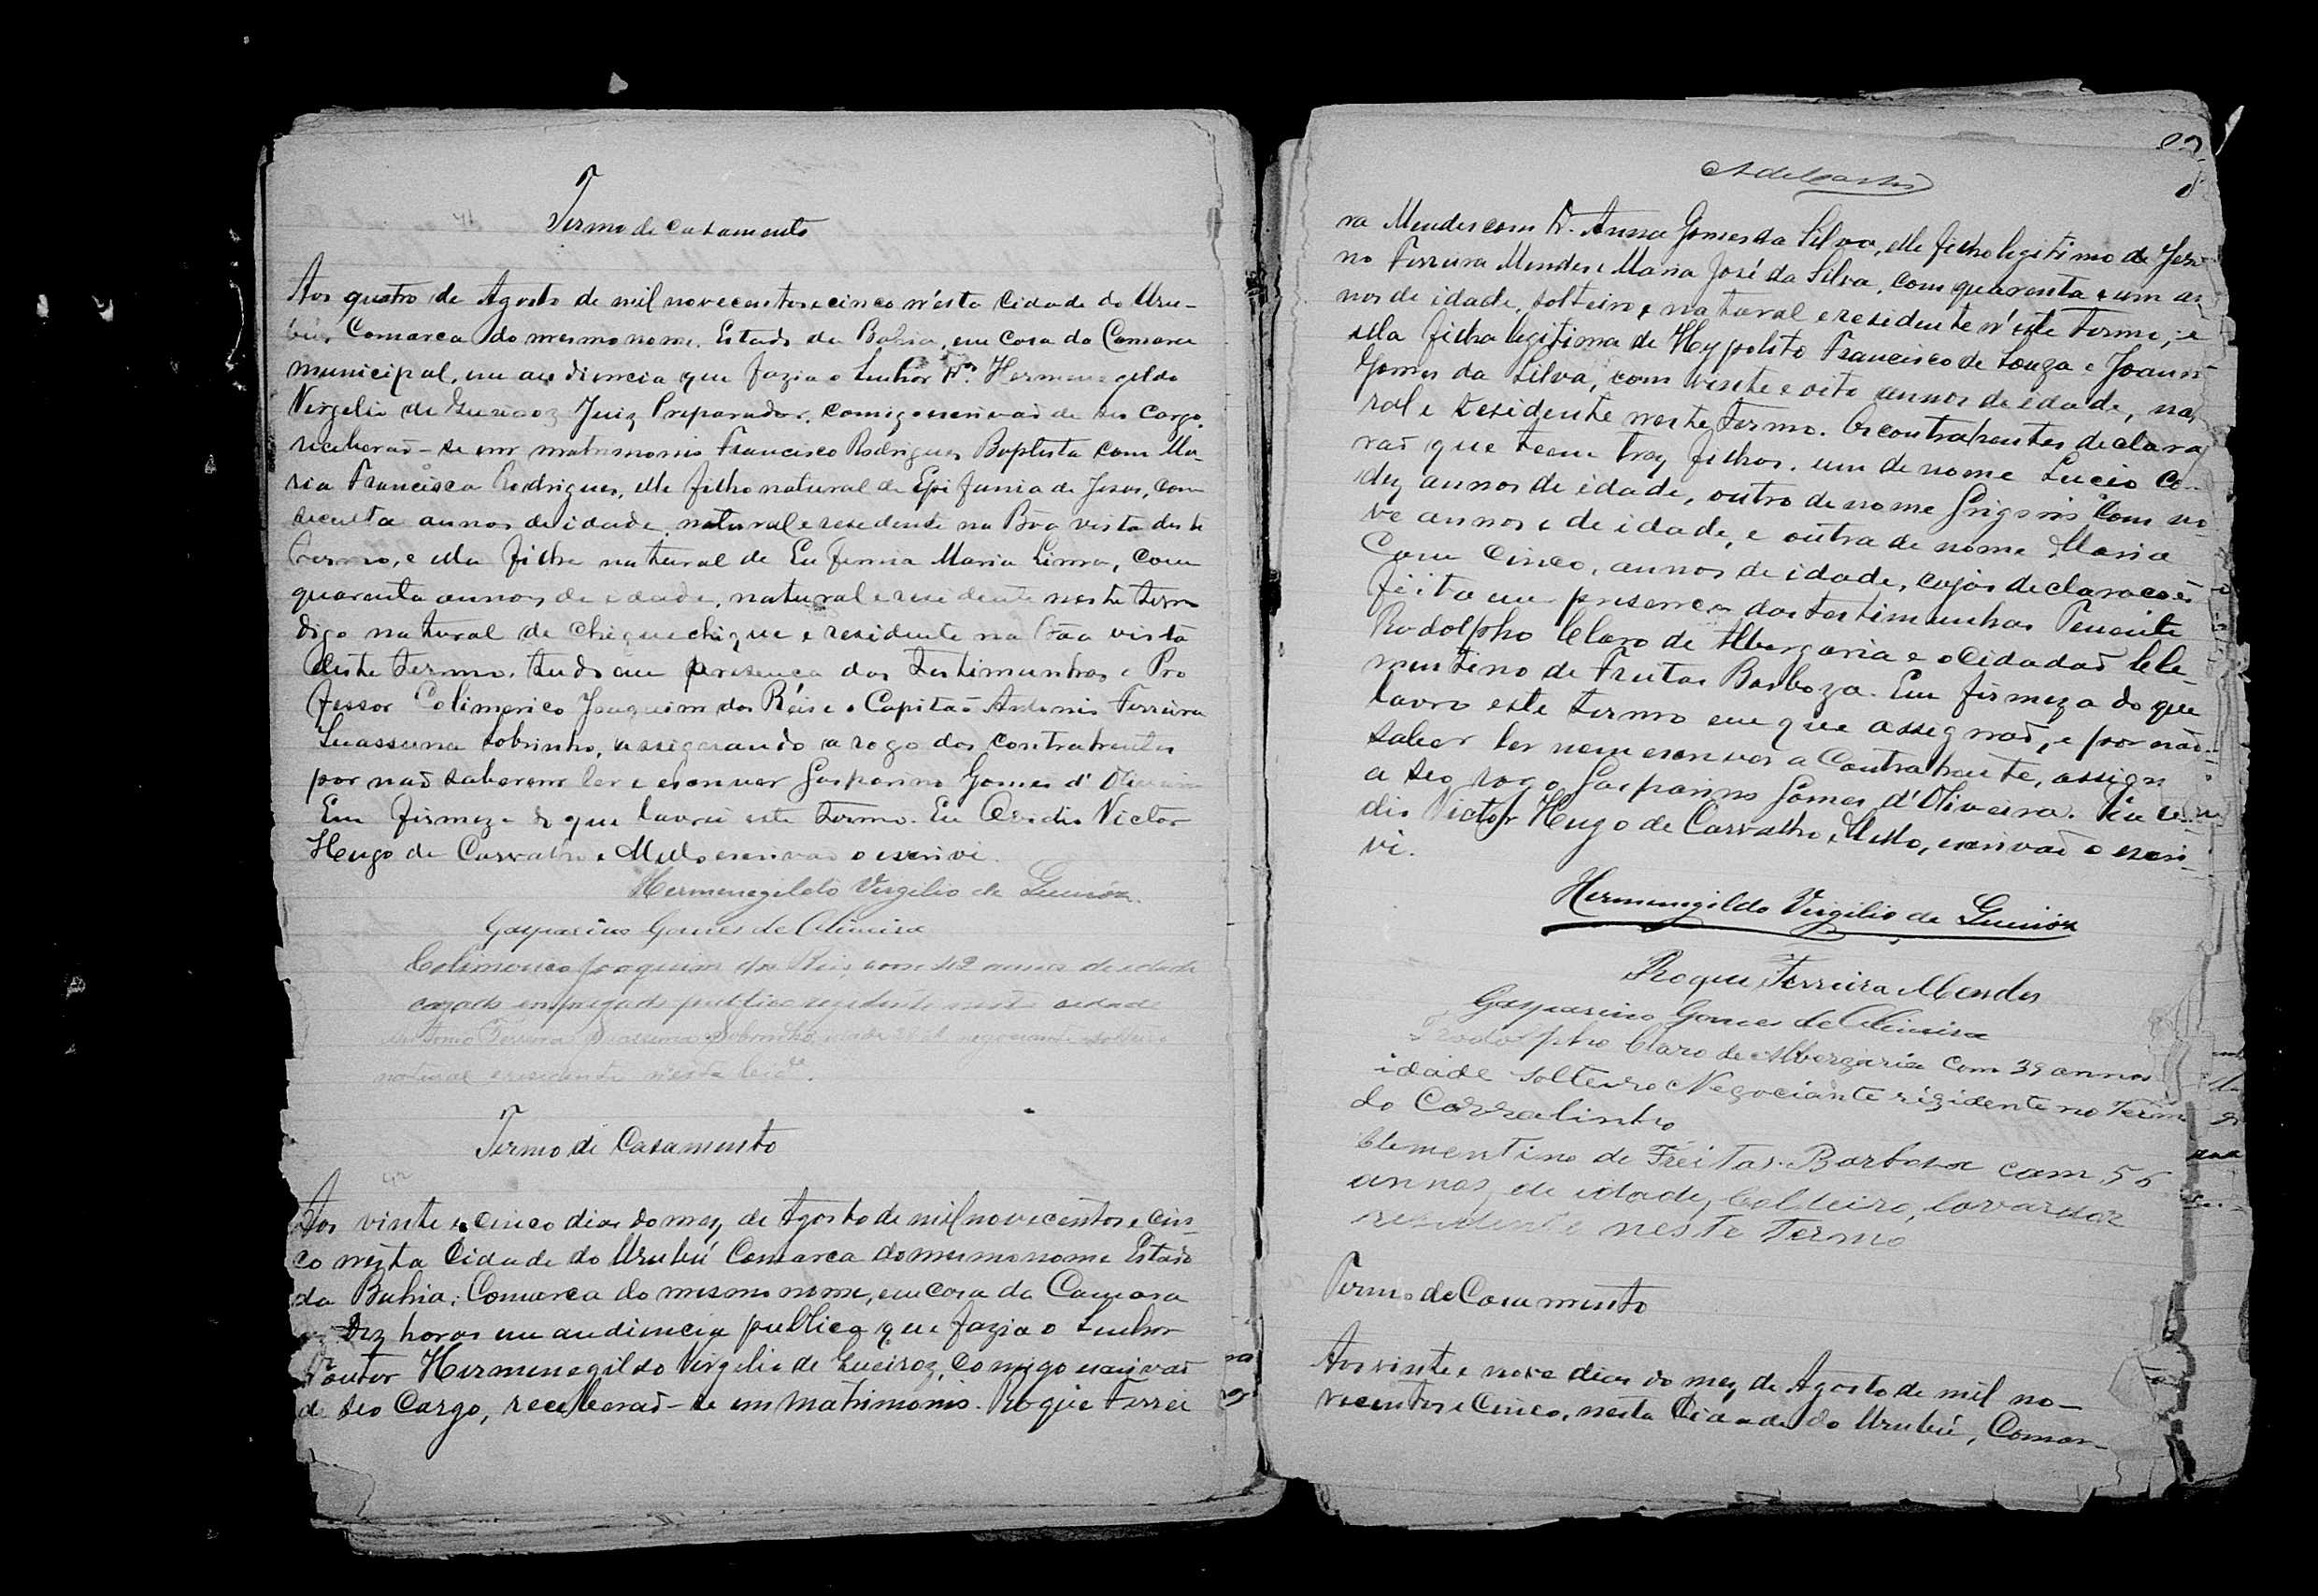 Termo de casamento
Aos quatro de Agosto de mil novecentos e cinco n'esta Cidade do Uru-
bú, Comarca do mesmo nome, Estado da Bahia, em casa da Camara
municipal, em audiencia que fazia o Senhor Dr. Hermenegildo
Virgilio de Queiroz Juiz Preparador, comigo escrivaõ de seo cargo,
receberaõ-se em matrimonio Francisco Rodrigues Baptista com Ma-
ria Francisca Rodrigues, elle filho natural de Epifania de Jesus, com
secenta annos de idade, natural e residente na Bôa vista deste
termo, e ella filha natural de Eufemia Maria Lima, com
quarenta annos de idade, natural e residente neste termo
digo natural de Chiquechique e residente na Bôa vista
deste termo, tudo em presença das testimunhas o Pro
fessor Colimerico Joaquim dos Reis e o Capitaõ Antonio Ferreira
Suassuna Sobrinho, assignando a rogo dos contrahentes
por naõ saberem ler e escrever Gasparino Gomes d'Oliveira
Em firmeza do que lavrei este termo. Eu Victor
Hugo de Carvalho e Mello escrivaõ o escrivi.
Hermenegildo Virgilio de Queiroz
Gasparino Gomes de Oliveira
Colimerico Joaquim dos Reis, com 42 annos de idade
casado empregado publico residente nesta cidade
Antonio Ferreira Suassuna Sobrinho, negociante solteiro
natural e residente n'esta Cid.e
Termo de Casamento
42
Aos vinte e cinco dias do mez de Agosto de mil novecentos e cin-
co nesta Cidade do Urubú Comarca do mesmo nome Estado
da Bahia, Comarca do mesmo nome, em casa da Camara
as dez horas em audiencia publica que fazia o Senhor
Doutor Hermenegildo Virgilio de Queiroz, comigo escrivaõ
de seo Cargo, receberaõ-se em matrimonio. Roque Ferrei
ra Mendes com D. Anna Gomes da Silva, elle filho legitimo de
no Ferreira Mendes e Maria José da Silva, com quarenta e um an
nos de idade, solteiro, natural e residente n'este termo; e
ella filha legitima de Hypolito Francisco de Souza e Joanna
Gomes da Silva, com vinte e oito annos de idade, na
ral e residente neste termo. Os contrahentes declara
raõ que teem trez filhos, um de nome Lucio co
dez annos de idade, outro de nome Grigorio com no
ve annos e de idade, e outra de nome Maria
Com cinco, annos de idade, cujas declaracoẽs
feita em presença das testimunhas Tenente
Rodolpho Claro de Albergaria e o Cidadaõ Cle
mentino de Freitas Barboza. Em firmeza do que
lavro este termo em que assignaõ, e por naõ
saber ler nem escrever a Contrahente, assign
a seo rogo Gasparino Gomes d'Oliveira. Eu
dio Victor Hugo de Carvalho e Mello, escrivaõ o escri-
vi.
Hermenegildo Virgilio de Queiroz
Roque Ferreira Mendes
Gasparino Gomes de Oliveira
Rodolpho Claro de Albergaria com 39 annos
idade solteiro Negociante rizidente no Term
do Corralinho
Clementino de Freitas Barbosa com 56
annos de idade, Colteiro, lavarador
residente neste Termo
Termo de Casamento
Aos vinte e nove dias do mez de Agosto de mil no-
vecentos e Cinco, nesta Cidade do Urubú, Comar-